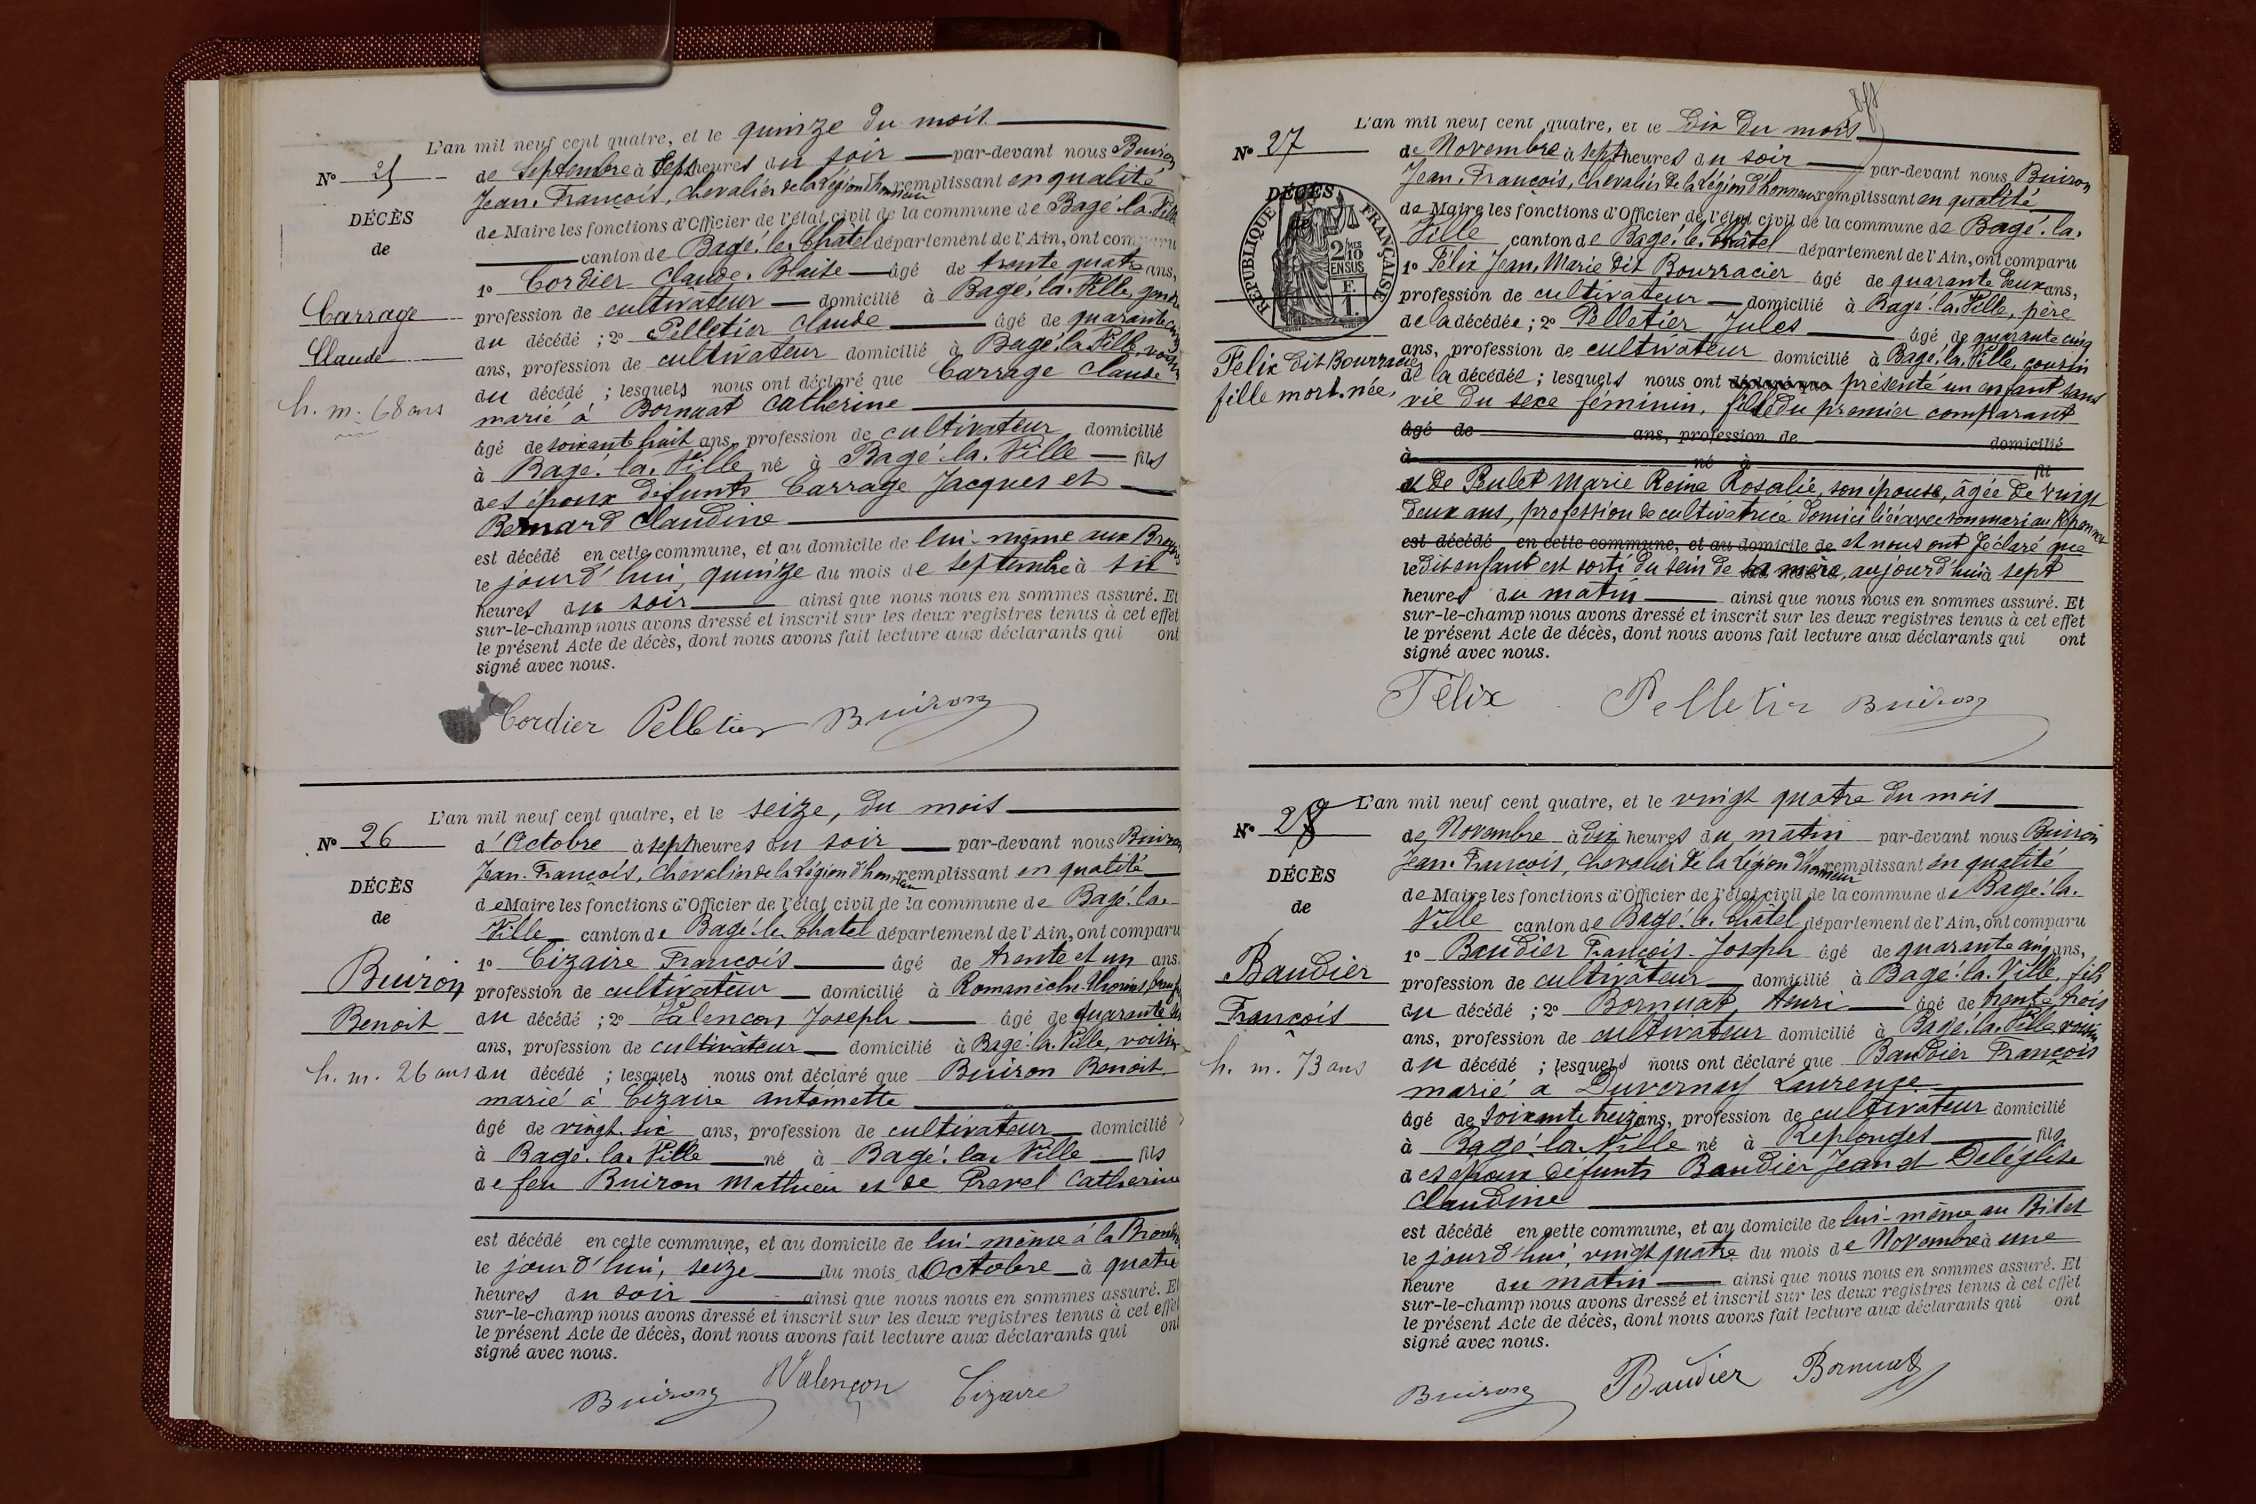 L'an mil neuf cent quatre, et le quinze du mois
de Septembre à sept heures du soir par-devant nous Buiron
Jean-François, Chevalier de la Légion d'honneur remplissant en qualité
de Maire les fonctions d'Officier de l'état civil de la commune de Bagé-la-Ville
canton de Bagé-le-Châtel département de l'Ain, ont comparu
1º Cordier Claude-Blaise âgé de trente quatre ans,
profession de cultivateur domicilié à Bagé-la-Ville, gendre
du décédé ; 2º Pelletier Claude âgé de quarante cinq
ans, profession de cultivateur domicilié à Bagé-la-Ville, voisin
du décédé ; lesquels nous ont déclaré que Carrage Claude
marié à Bornuat Catherine
âgé de soixante huit ans, profession de cultivateur domicilié
à Bagé-la-Ville né à Bagé-la-Ville fils
des époux défunts Carrage Jacques et
Bernard Claudine
est décédé en cette commune, et au domicile de lui-même aux
le jourd'hui, quinze du mois de Septembre à six
heures du soir ainsi que nous nous en sommes assuré. Et
sur-le-champ nous avons dressé et inscrit sur les deux registres tenus à cet effet
le présent Acte de décès, dont nous avons fait lecture aux déclarants qui ont
signé avec nous.
Nº 25
DÉCÈS
de
Carrage
Claude
h. m. 68 ans
Cordier Pelletier Buiron
L'an mil neuf cent quatre, et le seize, du mois
d'Octobre à sept heures du soir par-devant nous Buiron
Jean-François, Chevalier de la Légion d'honneur remplissant en qualité
de Maire les fonctions d'Officier de l'état civil de la commune de Bagé-la-
Ville canton de Bagé-le-Châtel département de l'Ain, ont comparu
1º Cizaire François âgé de trente et un ans,
profession de cultivateur domicilié à Romanèche-Thorins,
du décédé ; 2º Valençon Joseph âgé de quarante
ans, profession de cultivateur domicilié à Bagé-la-Ville, voisin
du décédé ; lesquels nous ont déclaré que Buiron Benoit
marié à Cizaire Antoinette
âgé de vingt-six ans, profession de cultivateur domicilié
à Bagé-la-Ville né à Bagé-la-Ville fils
de feu Buiron Mathieu et de Prevel Catherine
est décédé en cette commune, et au domicile de lui-même à la
le jourd'hui, seize du mois d'Octobre à quatre
heures du soir ainsi que nous nous en sommes assuré. Et
sur-le-champ nous avons dressé et inscrit sur les deux registres tenus à cet effet
le présent Acte de décès, dont nous avons fait lecture aux déclarants qui ont
signé avec nous.
Nº 26
DÉCÈS
de
Buiron
Benoit
h. m. 26 ans
Buiron Valençon Cizaire
L'an mil neuf cent quatre, et le Dix du mois
de Novembre à sept heures du soir par-devant nous Buiron
Jean-François, Chevalier de la Légion d'honneur remplissant en qualité
de Maire les fonctions d'Officier de l'état civil de la commune de Bagé-la-
Ville canton de Bagé-le-Châtel département de l'Ain, ont comparu
1º Félix Jean-Marie dit Bourracier âgé de quarante deux ans,
profession de cultivateur domicilié à Bagé-la-Ville, père
de la décédée ; 2º Pelletier Jules âgé de quarante cinq
ans, profession de cultivateur domicilié à Bagé-la-Ville, cousin
de la décédée ; lesquels nous ont déclaré que présenté un enfant sans
vie du sexe féminin, fille du premier comparant
âgé de ans, profession de domicilié
à né à fil
et de Peulet Marie Reine Rosalie, son épouse, âgée de vingt
deux ans, profession de cultivatrice domiciliée avec son mari au
est décédé en cette commune, et au domicile de et nous ont déclaré que
le dit enfant est sorti du sein de sa mère, aujourd'hui à sept
heures du matin ainsi que nous nous en sommes assuré. Et
sur-le-champ nous avons dressé et inscrit sur les deux registres tenus à cet effet
le présent Acte de décès, dont nous avons fait lecture aux déclarants qui ont
signé avec nous.
Nº 27
DÉCÈS
RÉPUBLIQUE FRANÇAISE
2/10
EN SUS
F.
1.
Félix dit Bourracier
fille mort-née,
Félix Pelletier Buiron
L'an mil neuf cent quatre, et le vingt quatre du mois
de Novembre à dix heures du matin par-devant nous Buiron
Jean-François, Chevalier de la Légion d'honneur remplissant en qualité
de Maire les fonctions d'Officier de l'état civil de la commune de Bagé-la-
Ville canton de Bagé-le-Châtel département de l'Ain, ont comparu
1º Baudier François-Joseph âgé de quarante cinq ans,
profession de cultivateur domicilié à Bagé-la-Ville, fils
du décédé ; 2º Bornuat Henri âgé de trente trois
ans, profession de cultivateur domicilié à Bagé-la-Ville voisin
du décédé ; lesquels nous ont déclaré que Baudier François
marié à Duvernay Laurence
âgé de soixante treize ans, profession de cultivateur domicilié
à Bagé-la-Ville né à Replonges fils
des époux défunts Baudier Jean et Deléglise
Claudine
est décédé en cette commune, et au domicile de lui-même au
le jourd'hui, vingt quatre du mois de Novembre à une
heure du matin ainsi que nous nous en sommes assuré. Et
sur-le-champ nous avons dressé et inscrit sur les deux registres tenus à cet effet
le présent Acte de décès, dont nous avons fait lecture aux déclarants qui ont
signé avec nous.
Nº 28
DÉCÈS
de
Baudier
François
h. m. 73 ans
Buiron Baudier Bornuat